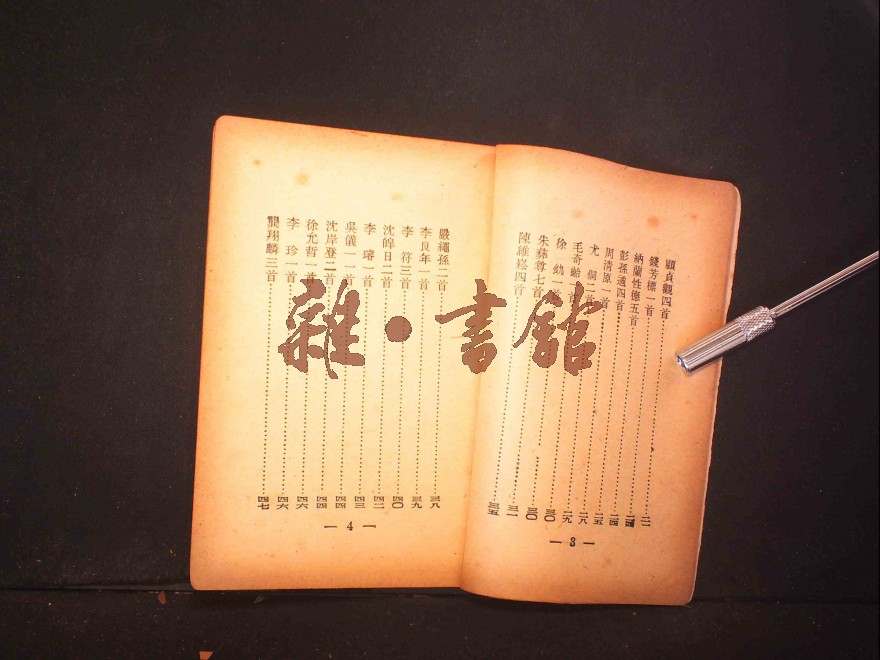 顧貞觀四首
錢芳標一首 二四
納蘭性德五首 二四
彭孫遹四首 二五
周清原一首 二八
尤 侗二首 二九
毛奇齡一首 三〇
徐 釚一首 三〇
朱彝尊七首 三一
陳維崧四首 三五
— 3 —
嚴繩孫二首 三八
李良年一首 三九
李 符三首 四〇
沈皥日二首 四二
李 璿一首 四三
吳儀一一首 四四
沈岸登二首 四四
徐允哲一首 四六
李 珍一首 四六
龔翔麟三首 四七
— 4 —
雜·書館